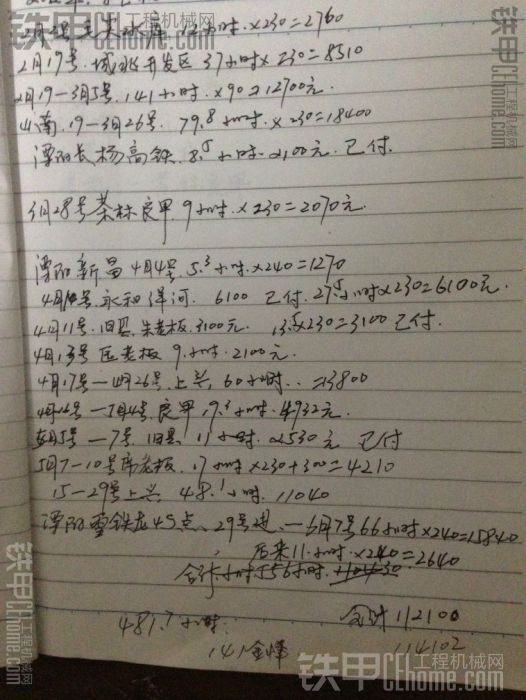 铁甲工程机械网 CEhome.com
12小时×230=2760
2月19号.城北开发区 37小时×230=8510
2月19-3月5号.141小时.×90=12700元.
山南.19-3月26号.79.8小时.×230=18400
溧阳长杨高铁.8.5小时.2100元.已付
3月28号茶林良甲.9小时.×230=2070元.
溧阳新昌4月4号.5.3小时.×240=1270
4月 号永和洋河.6100 已付.27.5小时×230=6100元.
4月11号.旧县.朱老板.3100元. 13.5×230=3100已付.
4月13号 老板 9.小时.2100元.
4月17号—4月26号.上兴.60小时..=13800
4月26号—5月4号.良甲.19.3小时.4932元.
5月5号—7号.旧县.11小时.2530元 已付
5月7-10号 老板.17小时×230+300=4210
15-29号上兴 48.1小时.11040
溧阳雪铁龙4S点、29号进.—6月7号66小时×240=15840
后来11.小时.×240=2640
合计小时556小时.
481.7小时. 合计112100
141 114102
铁甲工程机械网 CEhome.com